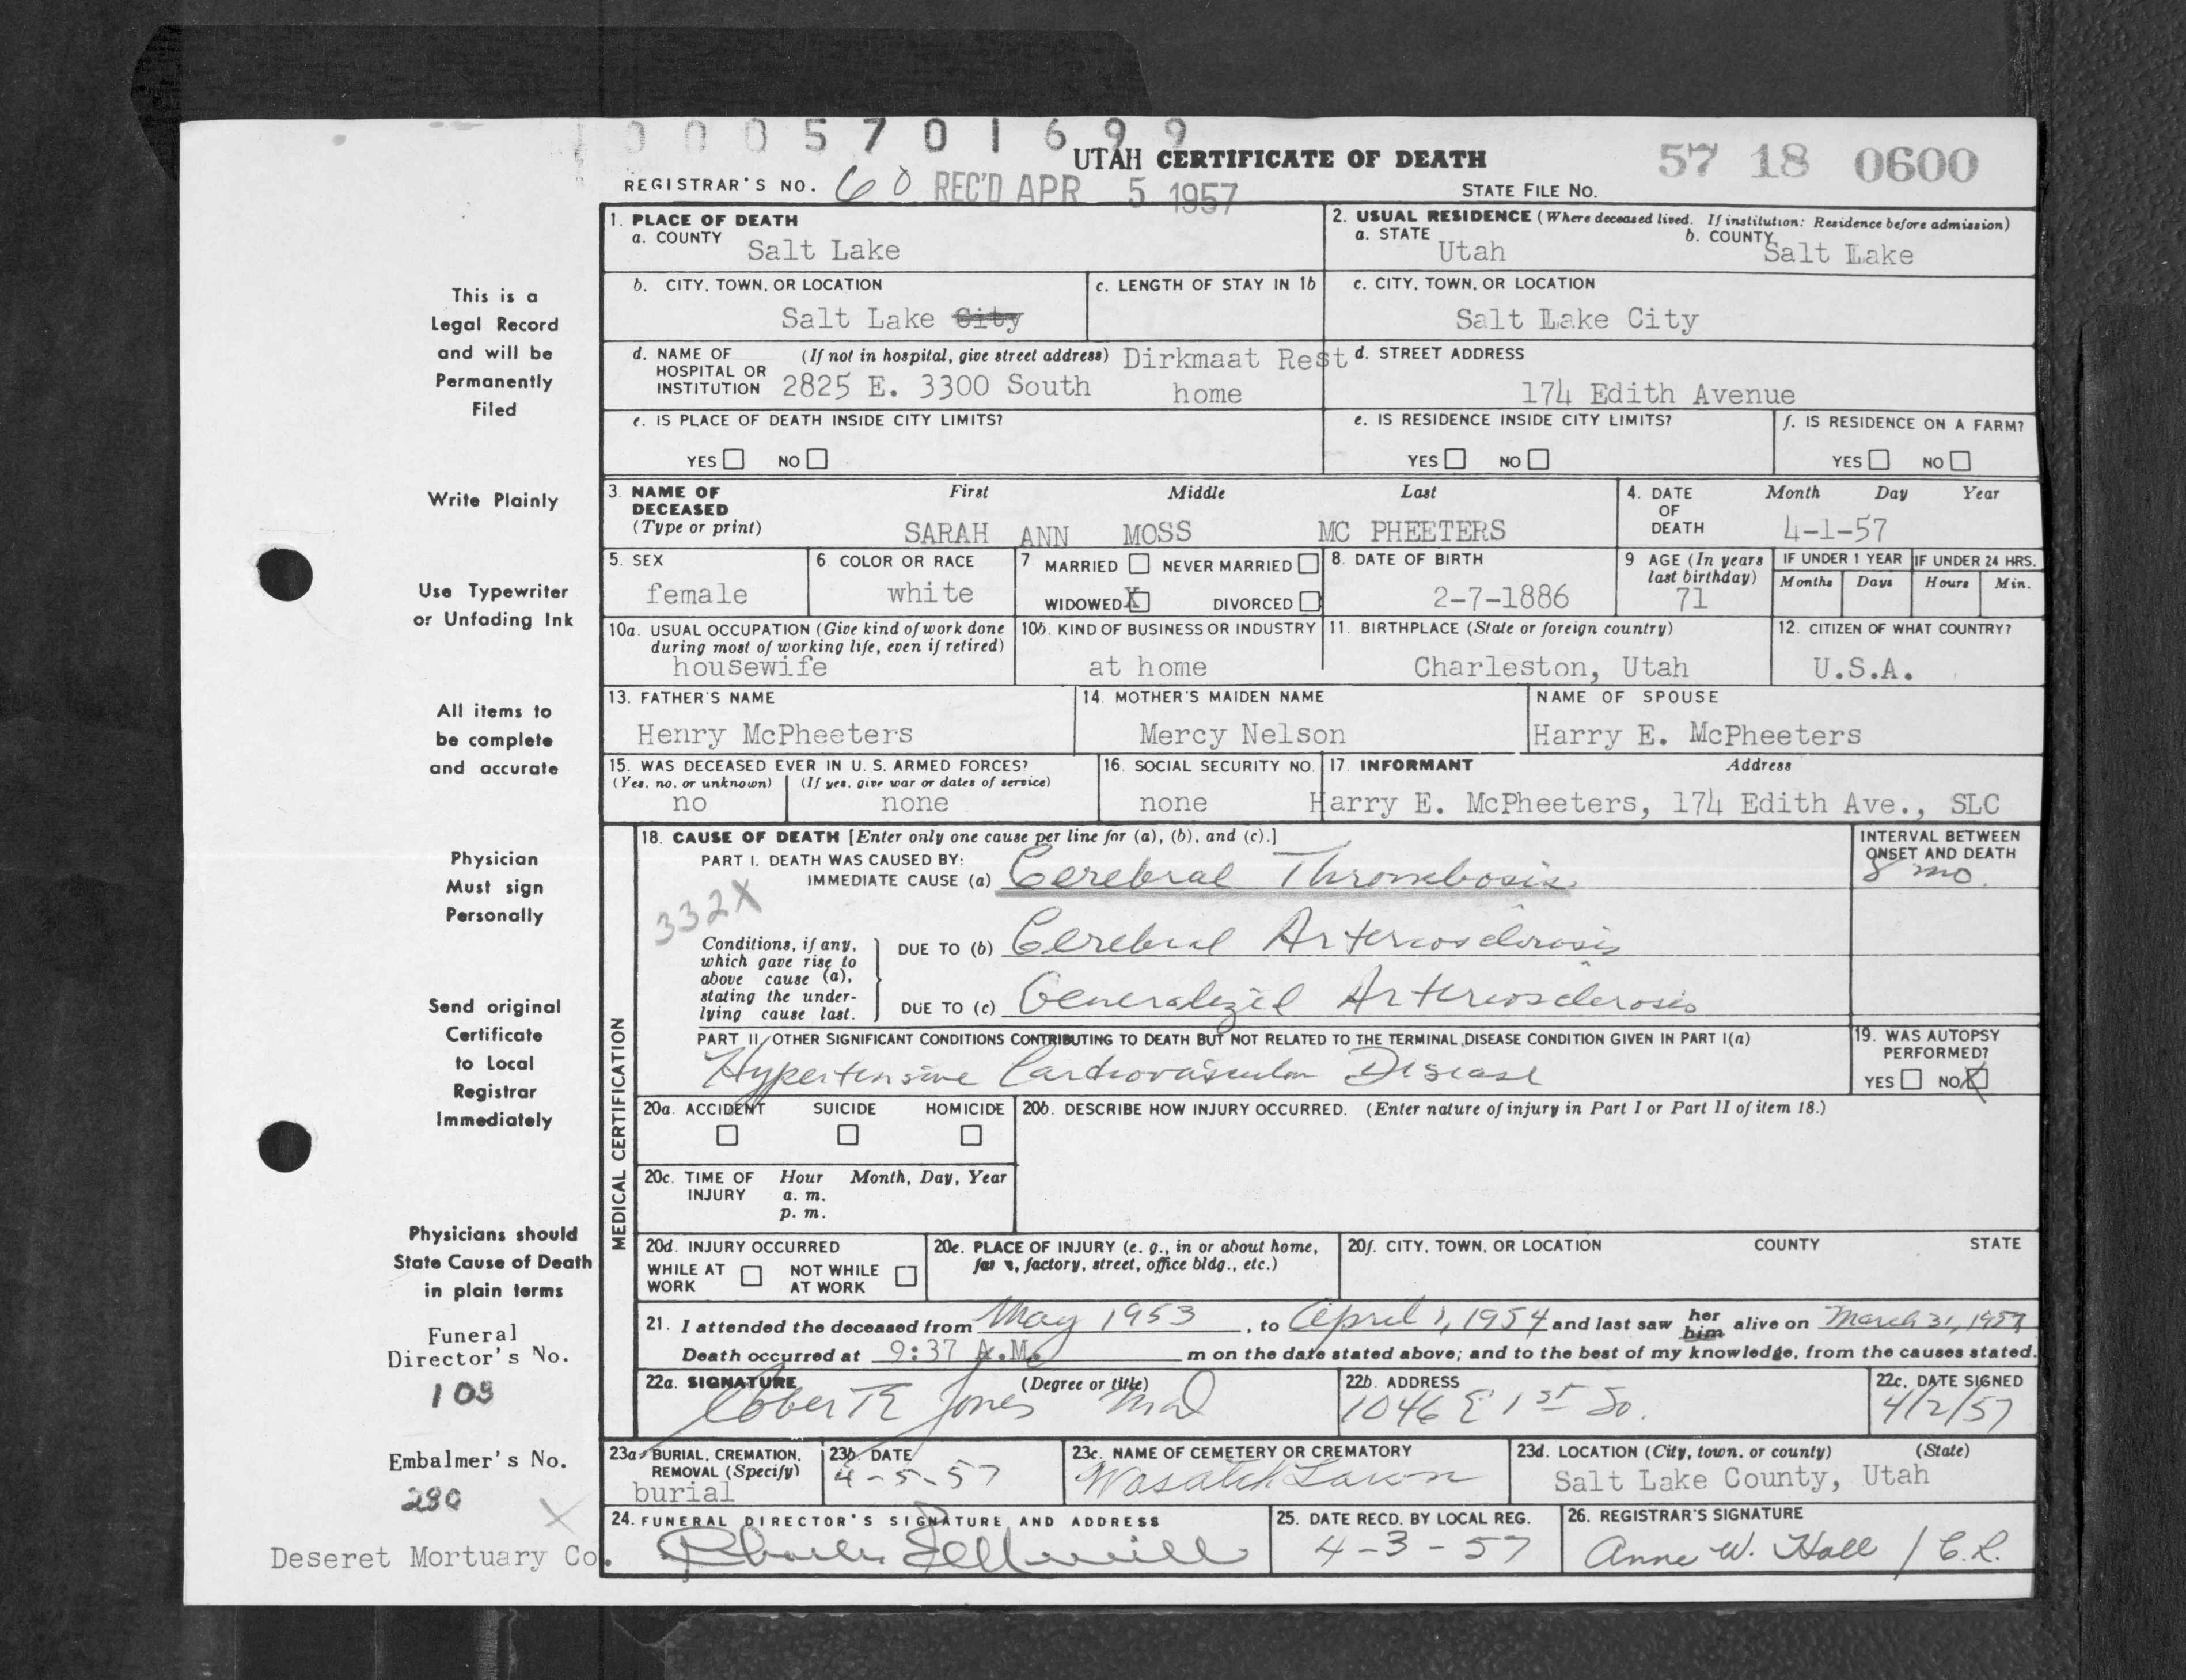 0005701699
UTAH CERTIFICATE OF DEATH
57 18 0600
REGISTRAR'S NO. 60 REC'D APR 5 1957
STATE FILE NO.
1. PLACE OF DEATH
a. COUNTY
Salt Lake
2. USUAL RESIDENCE (Where deceased lived. If institution: Residence before admission)
a. STATE
Utah
b. COUNTY
Salt Lake
b. CITY, TOWN, OR LOCATION
Salt Lake City
c. LENGTH OF STAY IN 1b
c. CITY, TOWN, OR LOCATION
Salt Lake City
d. NAME OF HOSPITAL OR INSTITUTION
(If not in hospital, give street address) Dirkmaat Rest
2825 E. 3300 South home
d. STREET ADDRESS
174 Edith Avenue
e. IS PLACE OF DEATH INSIDE CITY LIMITS?
YES NO
e. IS RESIDENCE INSIDE CITY LIMITS?
YES NO
f. IS RESIDENCE ON A FARM?
YES NO
3. NAME OF DECEASED
(Type or print)
First Middle Last
SARAH ANN MOSS MC PHEETERS
4. DATE OF DEATH
Month Day Year
4-1-57
5. SEX
female
6. COLOR OR RACE
white
7. MARRIED NEVER MARRIED
WIDOWED X DIVORCED
8. DATE OF BIRTH
2-7-1886
9 AGE (In years last birthday)
71
IF UNDER 1 YEAR
Months Days
IF UNDER 24 HRS.
Hours Min.
10a. USUAL OCCUPATION (Give kind of work done during most of working life, even if retired)
housewife
10b. KIND OF BUSINESS OR INDUSTRY
at home
11. BIRTHPLACE (State or foreign country)
Charleston, Utah
12. CITIZEN OF WHAT COUNTRY?
U.S.A.
13. FATHER'S NAME
Henry McPheeters
14. MOTHER'S MAIDEN NAME
Mercy Nelson
NAME OF SPOUSE
Harry E. McPheeters
15. WAS DECEASED EVER IN U. S. ARMED FORCES?
(Yes, no, or unknown) (If yes, give war or dates of service)
no none
16. SOCIAL SECURITY NO.
none
17. INFORMANT Address
Harry E. McPheeters, 174 Edith Ave., SLC
MEDICAL CERTIFICATION
18. CAUSE OF DEATH [Enter only one cause per line for (a), (b), and (c).]
PART I. DEATH WAS CAUSED BY:
IMMEDIATE CAUSE (a) Cerebral Thrombosis
INTERVAL BETWEEN ONSET AND DEATH
8 mo.
332X
Conditions, if any,
which gave rise to
above cause (a),
stating the under-
lying cause last.
DUE TO (b) Cerebral Arteriosclerosis
DUE TO (c) Generalized Arteriosclerosis
PART II. OTHER SIGNIFICANT CONDITIONS CONTRIBUTING TO DEATH BUT NOT RELATED TO THE TERMINAL DISEASE CONDITION GIVEN IN PART I(a)
Hypertensive Cardiovascular Disease
19. WAS AUTOPSY PERFORMED?
YES NO X
20a. ACCIDENT SUICIDE HOMICIDE
20b. DESCRIBE HOW INJURY OCCURRED. (Enter nature of injury in Part I or Part II of item 18.)
20c. TIME OF INJURY
Hour Month, Day, Year
a. m.
p. m.
20d. INJURY OCCURRED
WHILE AT WORK NOT WHILE AT WORK
20e. PLACE OF INJURY (e. g., in or about home,
factory, street, office bldg., etc.)
20f. CITY, TOWN, OR LOCATION COUNTY STATE
21. I attended the deceased from May 1953, to April 1, 1954 and last saw her him alive on March 31, 1957
Death occurred at 9:37 A.M. m on the date stated above; and to the best of my knowledge, from the causes stated.
22a. SIGNATURE (Degree or title)
Jones MD
22b. ADDRESS
1046 E 1st So.
22c. DATE SIGNED
4/2/57
23a. BURIAL, CREMATION, REMOVAL (Specify)
burial
23b. DATE
4-5-57
23c. NAME OF CEMETERY OR CREMATORY
Wasatch Lawn
23d. LOCATION (City, town, or county) (State)
Salt Lake County, Utah
24. FUNERAL DIRECTOR'S SIGNATURE AND ADDRESS
Charles
25. DATE RECD. BY LOCAL REG.
4-3-57
26. REGISTRAR'S SIGNATURE
Anne W. Hall / C.R.
This is a
Legal Record
and will be
Permanently
Filed
Write Plainly
Use Typewriter
or Unfading Ink
All items to
be complete
and accurate
Physician
Must sign
Personally
Send original
Certificate
to Local
Registrar
Immediately
Physicians should
State Cause of Death
in plain terms
Funeral
Director's No.
103
Embalmer's No.
280
X
Deseret Mortuary Co.